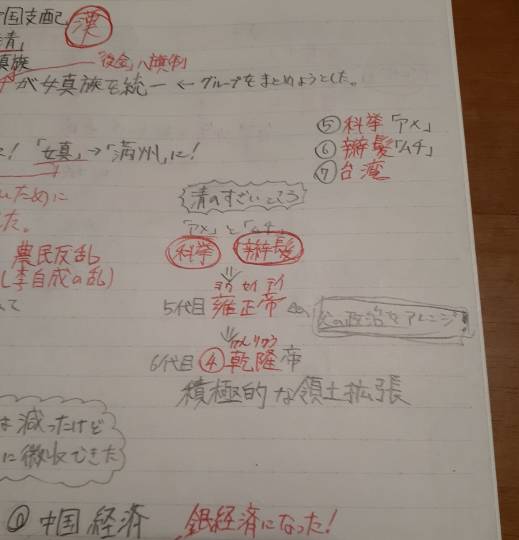 中国支配 漢
清」
真族 「後金」八旗制
が女真族を統一 ← グループをまとめようとした。
⑤科挙「アメ」
! 「女真」→「満州」に! ⑥辮髪「ムチ」
⑦台湾
ために 清のすごいところ
した。 「アメ」と「ムチ」
農民反乱 科挙 辮髪
(李自成の乱) ヨウ セイ テイ
5代目 雍正帝 父の政治をアレンジ
けんりゅう
6代目 ④乾隆帝
積極的な領土拡張
は減ったけど
に徴収できた
中国経済 銀経済になった!